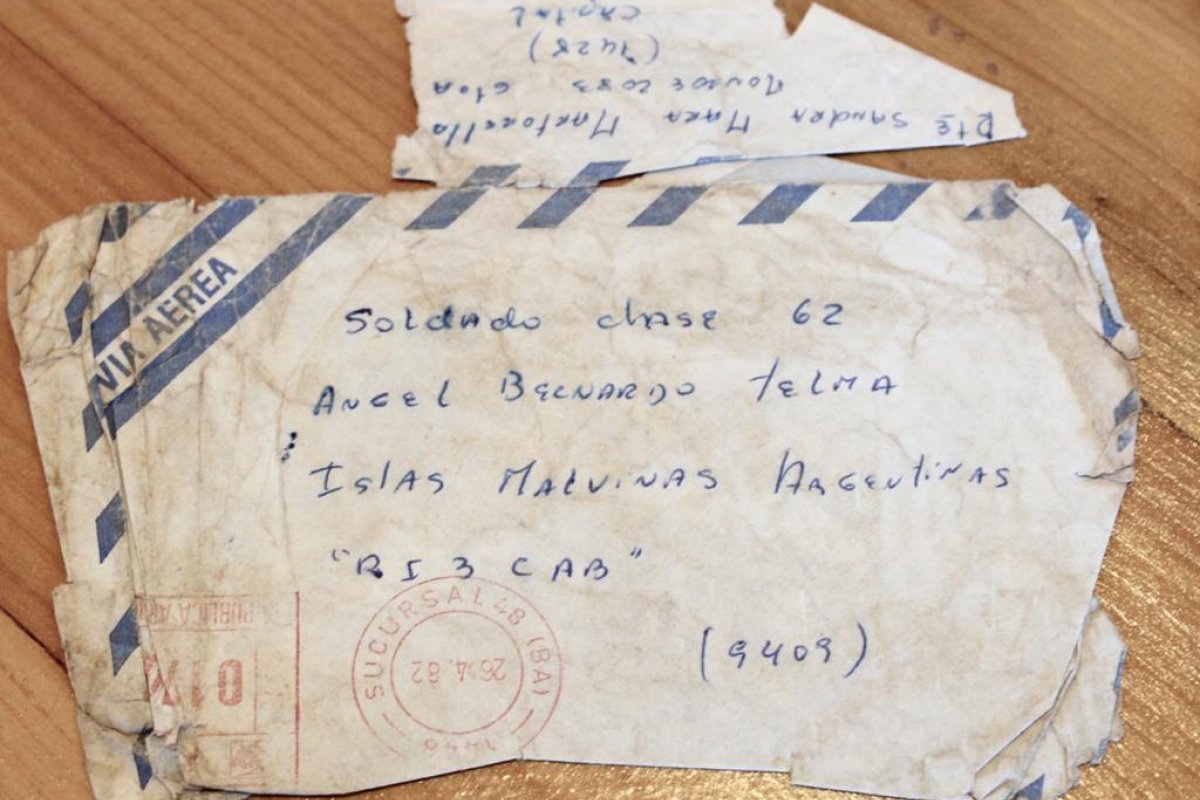 Rte SANDRA MARA MARTORELLO
MONROE 2083 6toA
(1428)
CAPITAL
VIA AEREA
Soldado clase 62
ANGEL BERNARDO TELMA
ISLAS MALVINAS ARGENTINAS
"RI 3 CAB"
(9409)
SUCURSAL 48 (BA)
26.4.82
PUBLICA AR